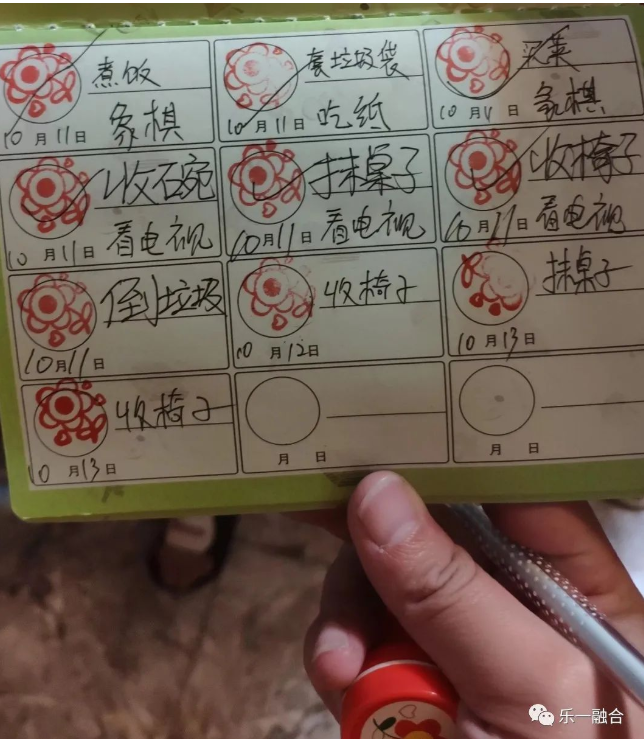 煮饭
象棋
10月11日
套垃圾袋
吃纸
10月11日
买菜
象棋
10月11日
收石宛
看电视
10月11日
抹桌子
看电视
10月11日
收椅子
看电视
10月11日
倒垃圾
10月11日
收椅子
10月12日
抹桌子
10月13日
收椅子
10月13日
月 日
月 日
乐一融合